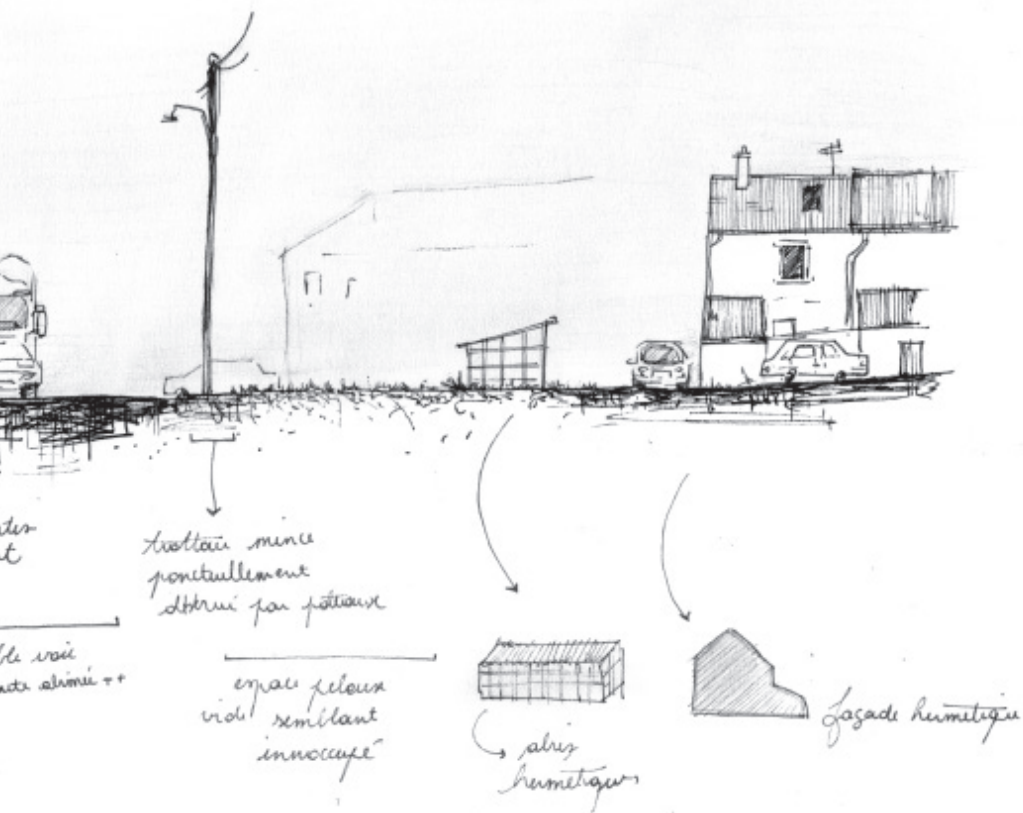 trottoir mince
ponctuellement
obstrué par poteaux
ble voie
abimée ++
espace pelouse
vide semblant
innoccupé
abris
hermétiques
façade hermétique